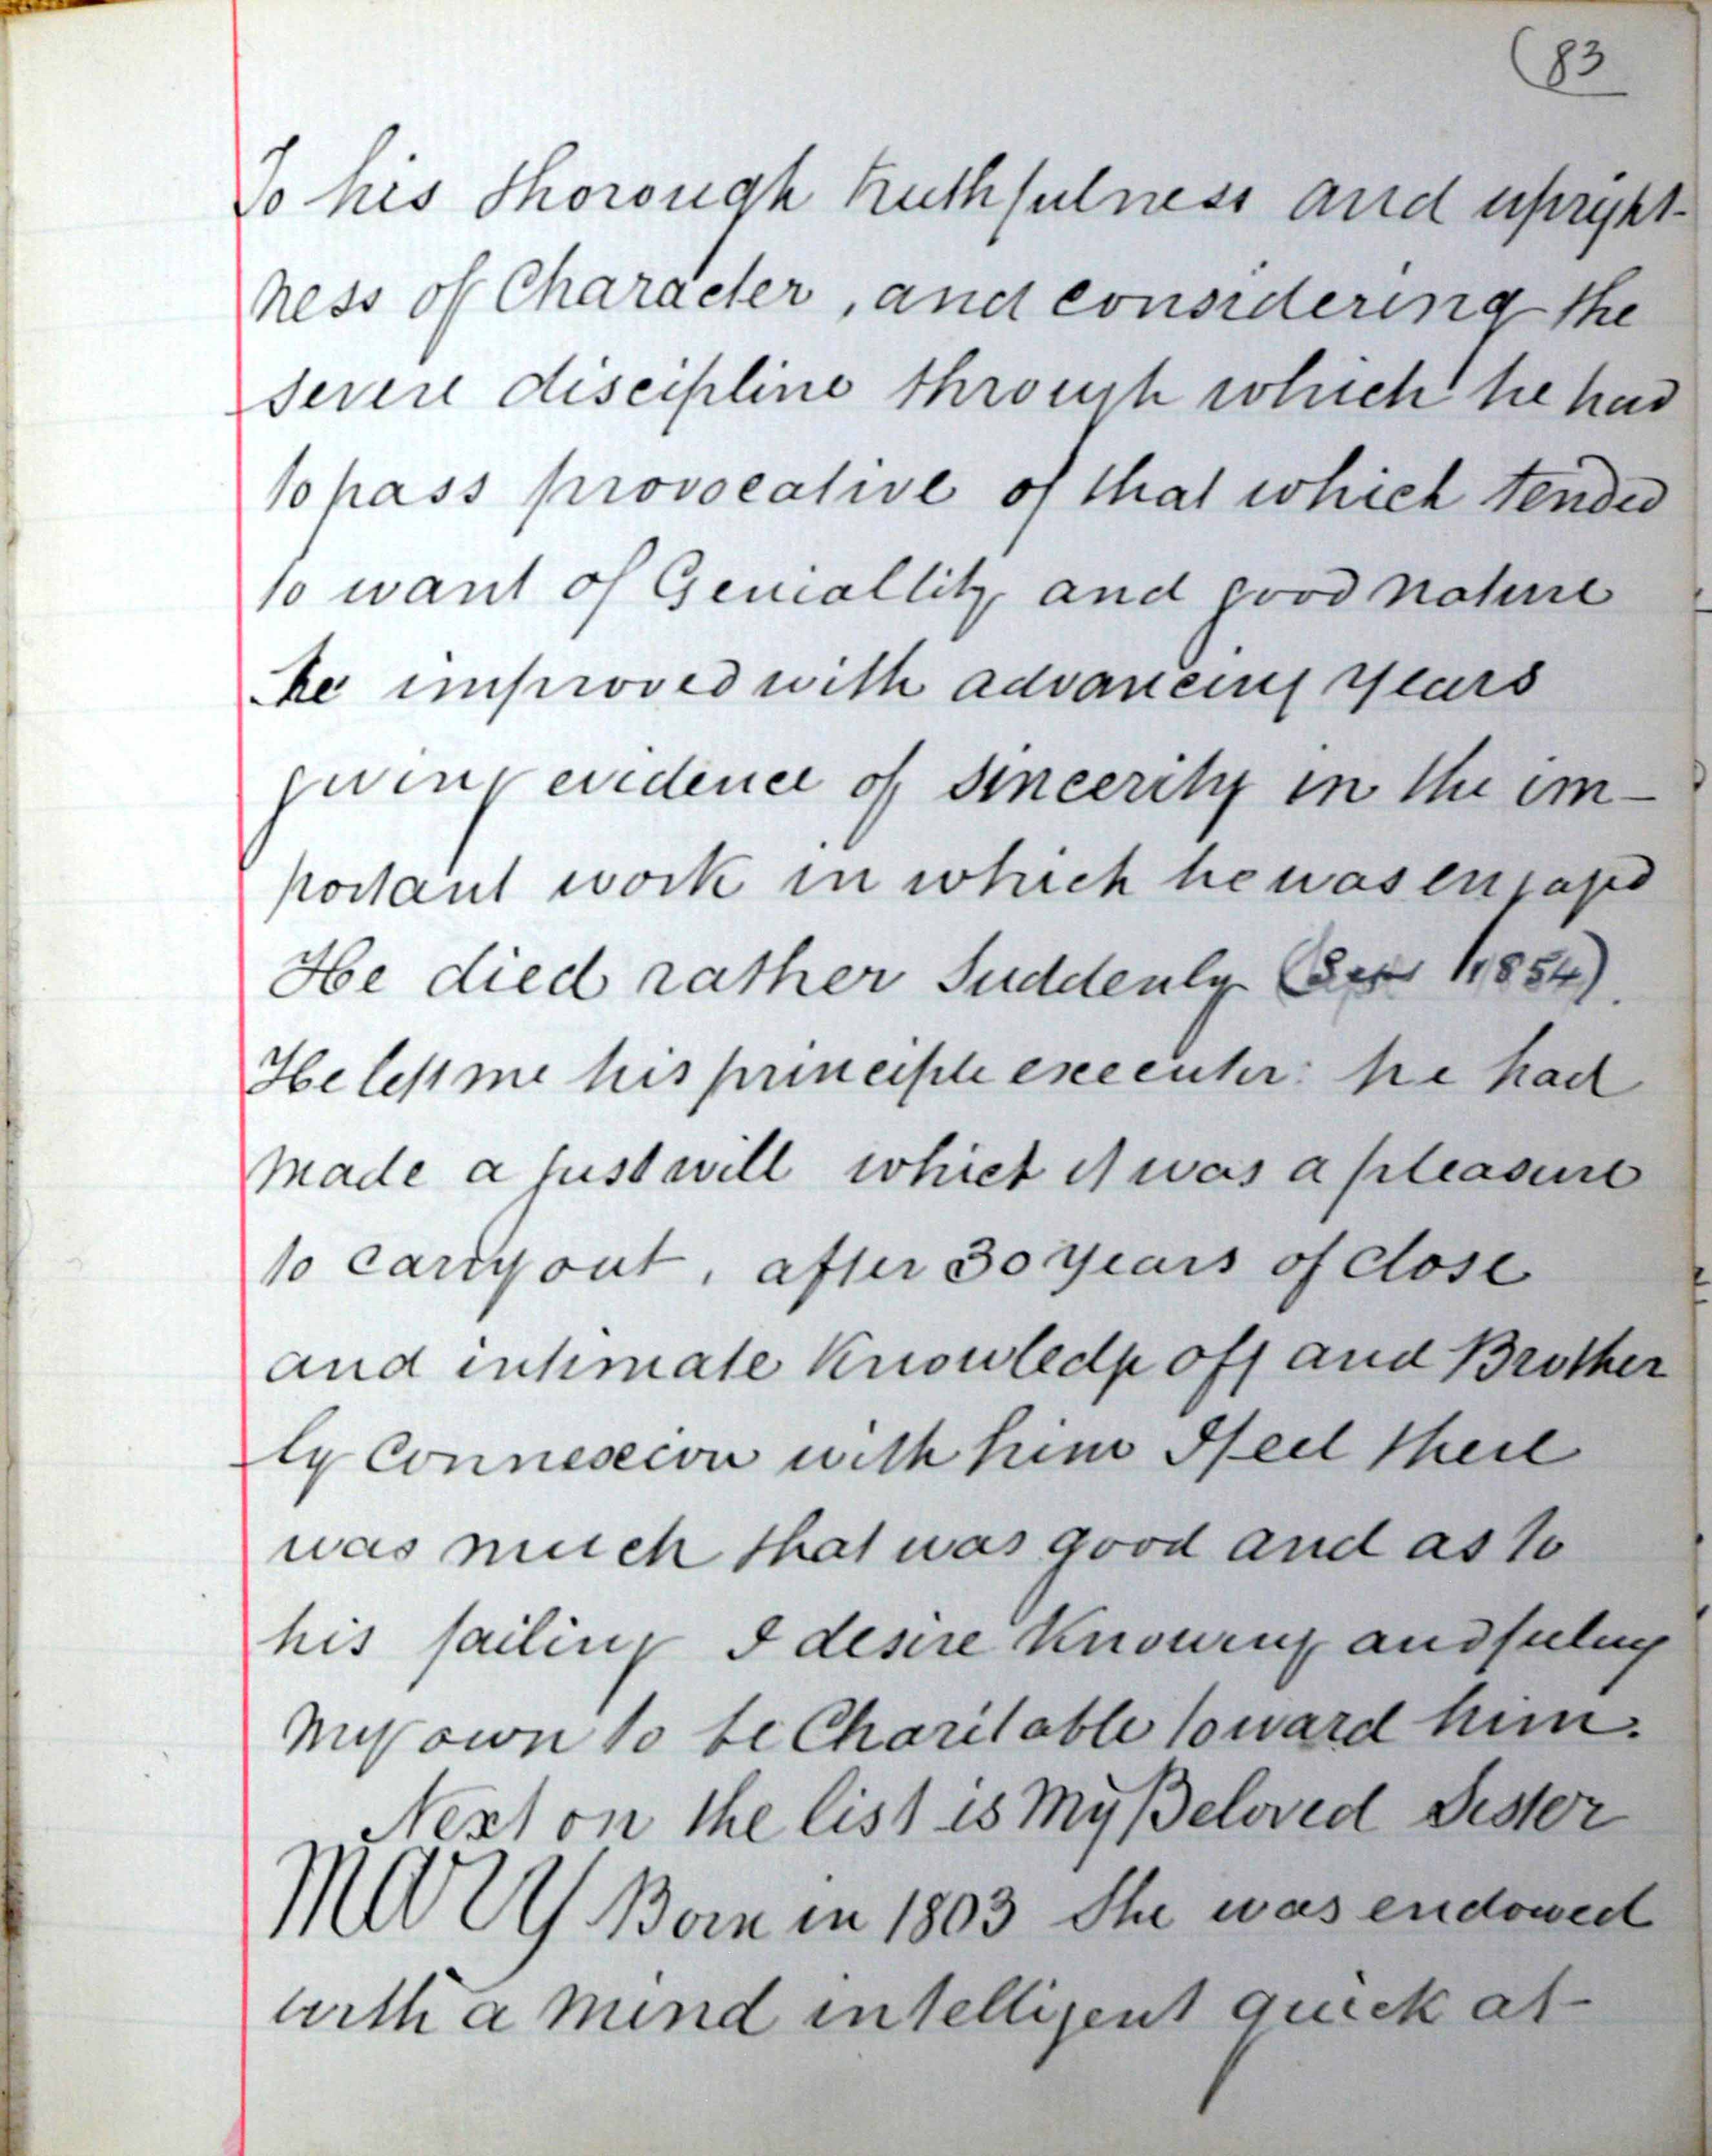 (83
To his thorough truthfulness and upright-
ness of Character, and considering the
severe discipline through which he had
to pass provocative of that which tended
to want of Geniallity and good nature
he improved with advancing years
giving evidence of sincerity in the im-
portant work in which he was engaged
He died rather suddenly (Sep 1854).
He left me his principle executer: he had
made a just will which it was a pleasure
to carry out, after 30 years of close
and intimate Knowledge off and Brother
ly Connexion with him I feel there
was much that was good and as to
his failing I desire Knowing and feeling
my own to be Charitable toward him.
Next on the list is My Beloved Sister
Mary Born in 1803 She was endowed
with a mind intelligent quick at-